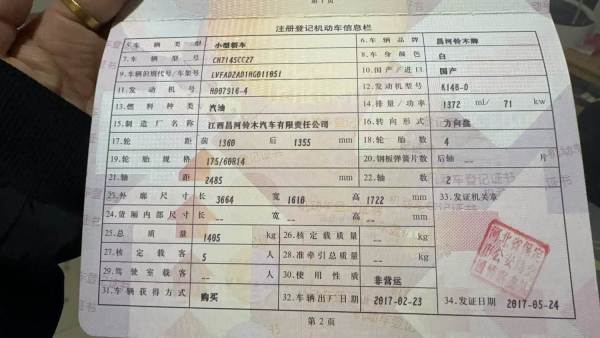 第 1 页
注册登记机动车信息栏
5.车辆类型 小型轿车 6.车辆品牌 昌河铃木牌
7.车辆型号 CH7145CC27 8.车身颜色 白
9.车辆识别代号/车架号 LVFAD2AD1HG011951 10.国产/进口 国产
11.发动机号 H007916-4 12.发动机型号 K14B-D
13.燃料种类 汽油 14.排量/功率 1372 ml/ 71 kw
15.制造厂名称 江西昌河铃木汽车有限责任公司 16.转向形式 方向盘
17.轮距 前 1360 后 1355 mm 18.轮胎数 4
19.轮胎规格 175/60R14 20.钢板弹簧片数 后轴 -- 片
21.轴距 2485 mm 22.轴数 2
23.外廓尺寸 长 3664 宽 1610 高 1722 mm 33.发证机关章
24.货厢内部尺寸 长 -- 宽 -- 高 -- mm
25.总质量 1405 kg 26.核定载质量 -- kg
27.核定载客 5 人 28.准牵引总质量 -- kg
29.驾驶室载客 -- 人 30.使用性质 非营运
31.车辆获得方式 购买 32.车辆出厂日期 2017-02-23 34.发证日期 2017-05-24
第 2 页